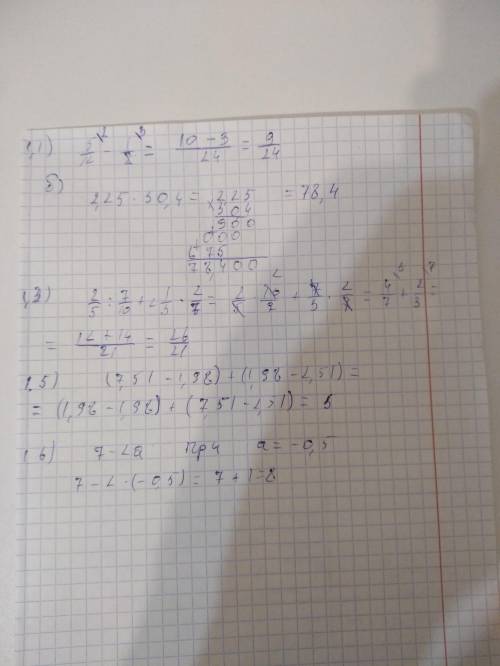 1,1) 5/12 - 1/8 = (10 - 3)/24 = 9/24
б)
2,25 · 30,4 = 225 = 78,4
304
900
000
675
78,400
1,3) 2/5 : 7/10 + 2 1/3 · 2/7 = 2/5 · 10/7 + 7/3 · 2/7 = 4/7 + 2/3 =
= (12 + 14)/21 = 26/21
1,5) (7,51 - 1,98) + (1,98 - 2,51) =
= (1,98 - 1,98) + (7,51 - 2,51) = 5
1,6) 7 - 2a при a = -0,5
7 - 2 · (-0,5) = 7 + 1 = 8